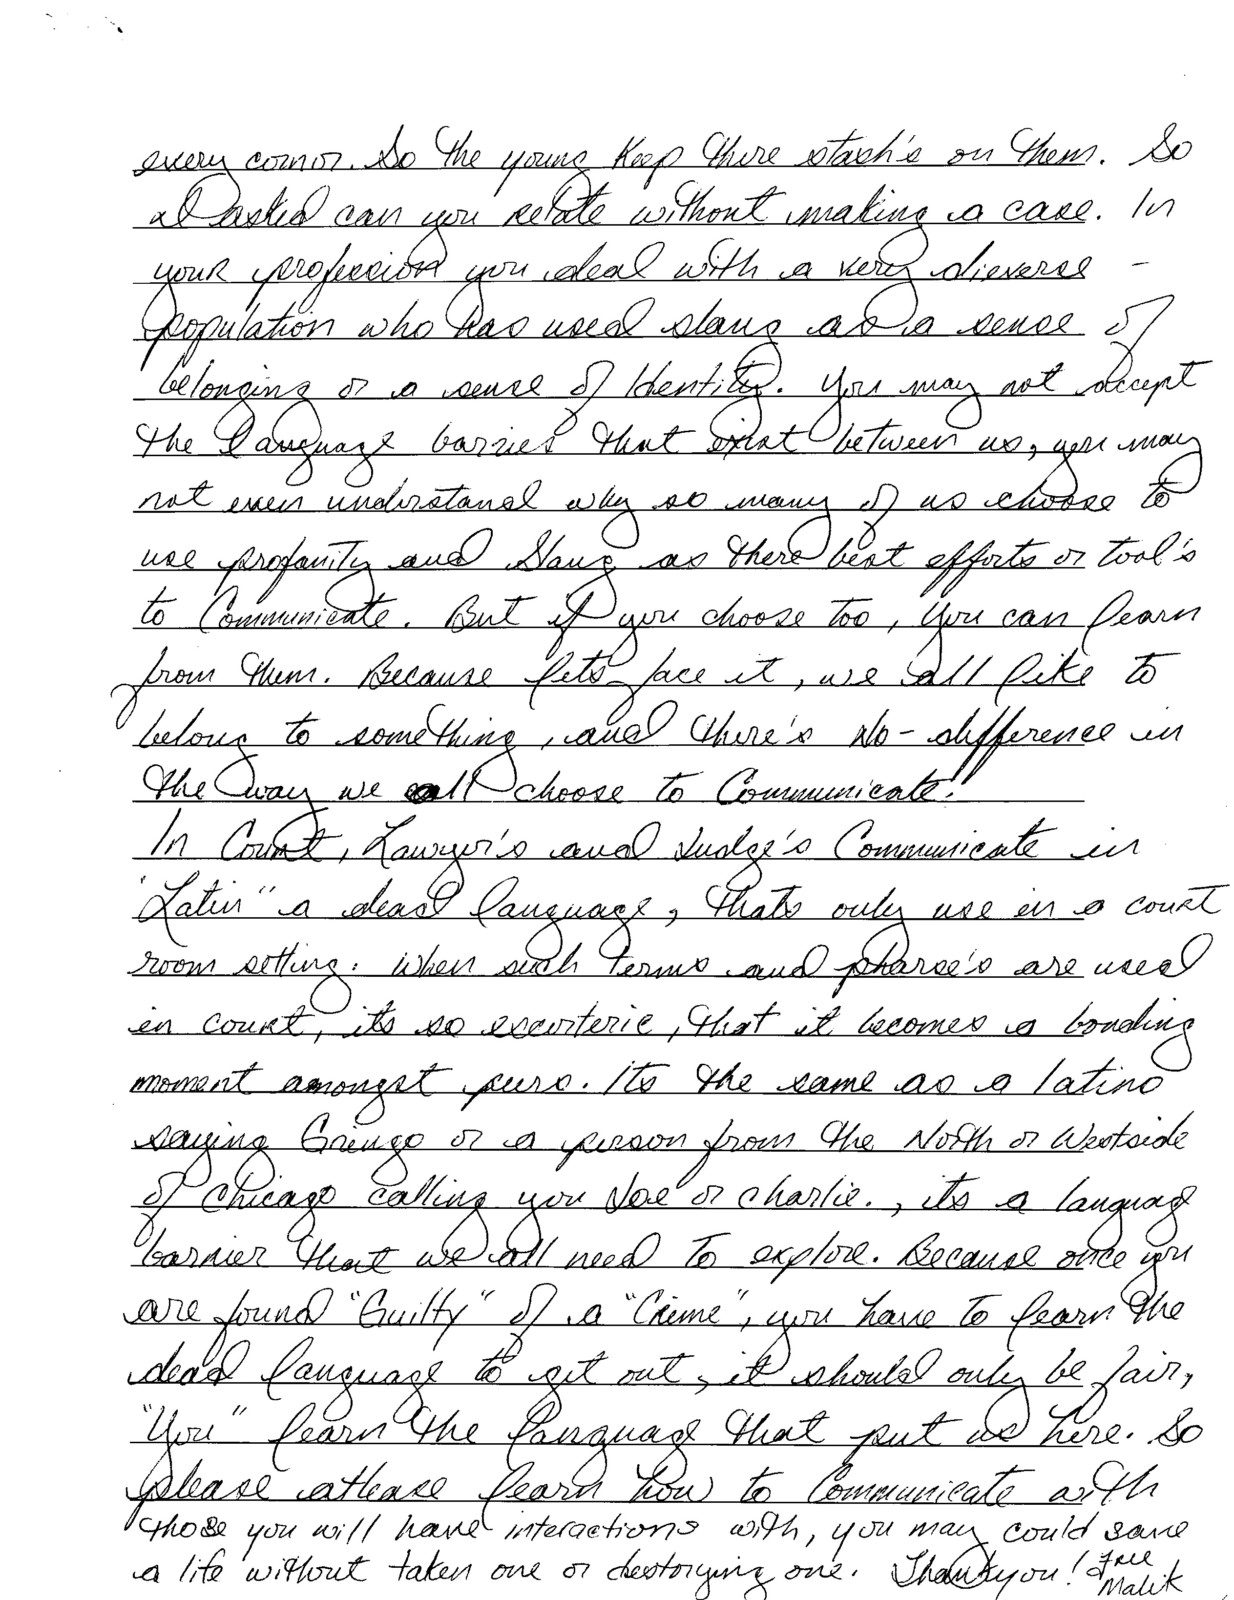 every cornor. So the young Keep there stash's on them. So
I asked can you relate without making a case. In
your profession you deal with a very dieverse -
population who has used slang as a sense of
belonging or a sense of Identity. You may not accept
the language barries that exist between us, you may
not even understand why so many of us choose to
use profanity and Slang as there best efforts or tool's
to Communicate. But if you choose too, you can learn
from them. Because lets face it, we all like to
belong to something, and there's No-difference in
the way we all choose to Communicate!
In Court, Lawyer's and Judge's Communicate in
"Latin" a dead language, thats only use in a court
room setting. When such terms and pharse's are used
in court, its so exeurteric, that it becomes a bonding
moment amongst peers. Its the same as a latino
saying Gringo or a person from the North or Westside
of Chicago calling you Joe or Charlie., its a language
barrier that we all need to explore. Because once you
are found "Guilty" of a "Crime", you have to learn the
dead language to get out, it should only be fair,
"You" learn the language that put us here. So
please atlease learn how to Communicate with
those you will have interactions with, you may could save
a life without taken one or destorying one. Thankyou! Free
Malik